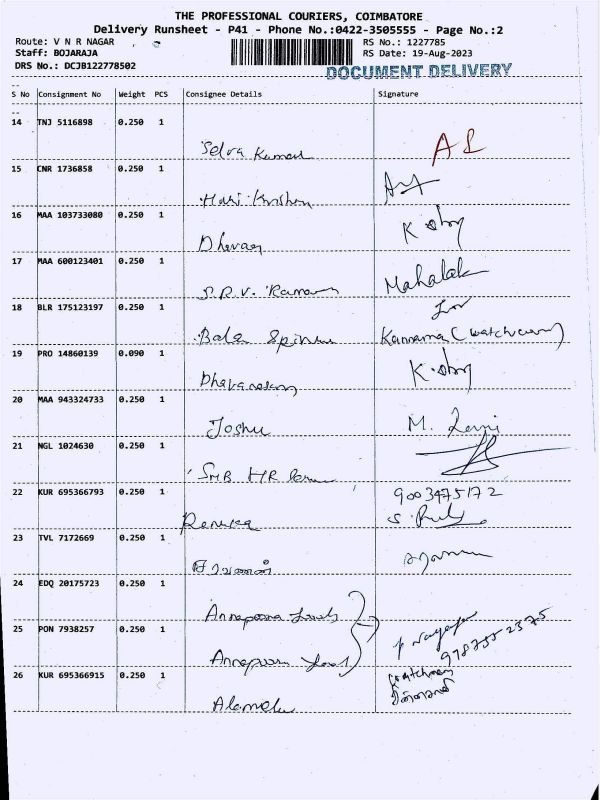 THE PROFESSIONAL COURIERS, COIMBATORE
Delivery Runsheet - P41 - Phone No.:0422-3505555 - Page No.:2
Route: V N R NAGAR
RS No.: 1227785
Staff: BOJARAJA
RS Date: 19-Aug-2023
DRS No.: DCJB122778502
DOCUMENT DELIVERY
S No Consignment No Weight PCS Consignee Details Signature
14 TNJ 5116898 0.250 1
Selva Kumar
15 CNR 1736858 0.250 1
Hari Krishna
16 MAA 103733080 0.250 1
K
17 MAA 600123401 0.250 1
S.R.V. Mahalak
18 BLR 175123197 0.250 1
for
Bala Kannama (watchman)
19 PRO 14860139 0.090 1
K.
20 MAA 943324733 0.250 1
Joshu M.
21 NGL 1024630 0.250 1
SMB HR
22 KUR 695366793 0.250 1
9003475172
Renuka S.
23 TVL 7172669 0.250 1
சரவணன்
24 EDQ 20175723 0.250 1
Annapoorna
25 PON 7938257 0.250 1
Annapoorna
watchman
26 KUR 695366915 0.250 1
Alamelu